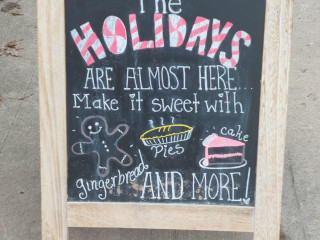 The
HOLIDAYS
ARE ALMOST HERE...
Make it sweet with
cake
Pies
gingerbread
AND MORE!